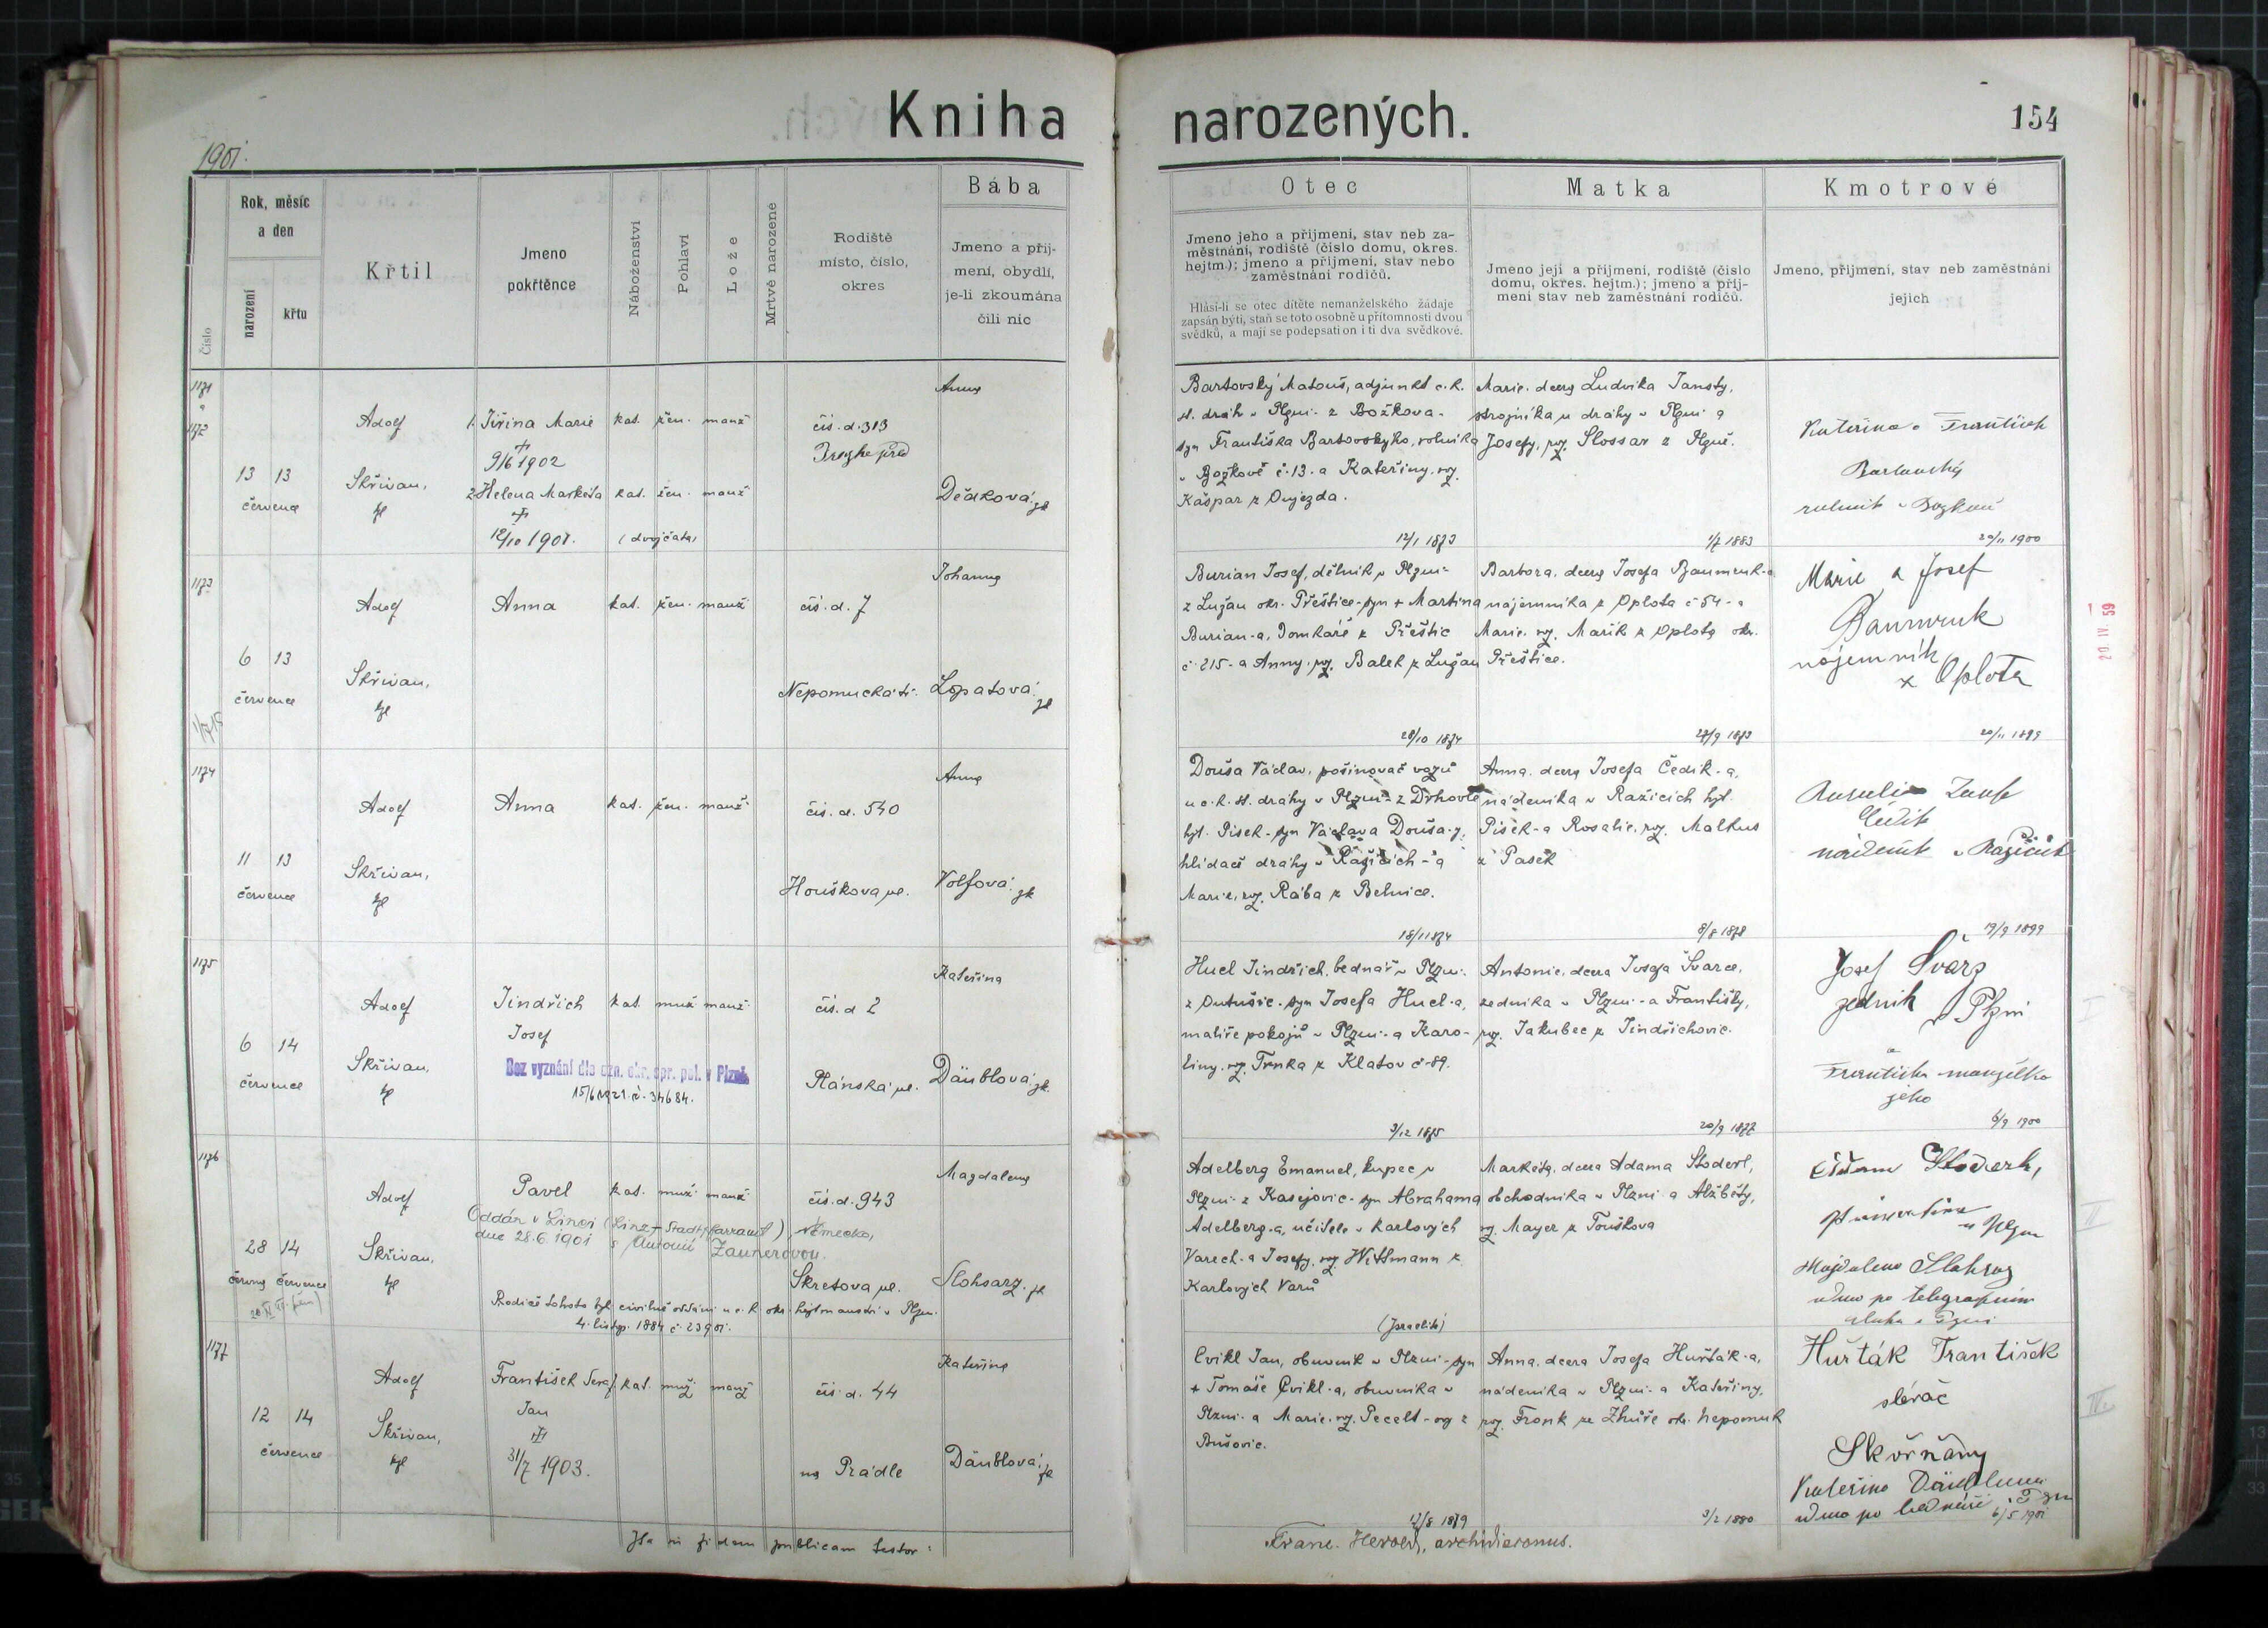 Kniha narozených.
154
1901.
Číslo
Rok, měsíc
a den
narození
křtu
Křtil
Jmeno
pokřtěnce
Náboženství
Pohlaví
Lože
Mrtvě narozene
Rodiště
místo, číslo,
okres
Bába
Jmeno a příj-
mení, obydlí,
je-li zkoumána
čili nic
Otec
Jmeno jeho a příjmení, stav neb za-
městnání, rodiště (číslo domu, okres.
hejtm.); jmeno a příjmení, stav nebo
zaměstnání rodičů.
Hlásí-li se otec dítěte nemanželského žádaje
zapsán býti, staň se toto osobně u přítomnosti dvou
svědků, a mají se podepsati on i ti dva svědkové.
Matka
Jmeno její a příjmení, rodiště (číslo
domu, okres. hejtm.); jmeno a příj-
mení stav neb zaměstnání rodičů.
Kmotrové
Jmeno, příjmení, stav neb zaměstnání
jejich
1171
a
1172
13 13
července
Adolf
Skřivan,
1. Jiřina Marie kat. žen. manž
9/6 1902
2. Helena Markéta kat. žen. manž
12/10 1901. (dvojčata)
čís. d. 313
Anna
Deáková
Bartovský Matouš, adjunkt c. k.
st. dráh v Plzni z Božkova-
syn Františka Bartovského, rolníka
v Božkově č. 13. a Kateřiny, roz.
Kašpar z Oujezda.
12/1 1873
Marie, dcera Ludvíka Jansty,
strojníka u dráhy v Plzni a
Josefy, roz. Slossar z Plzně.
1/7 1883
Kateřina a František
Bartovský
rolník v Božkově
20/11 1900
1173
6 13
července
Adolf
Skřivan,
Anna
kat. žen. manž
čís. d. 7
Nepomucká tř.
Johanna
Lopatová
Burian Josef, dělník v Plzni
z Lužan okr. Přeštice-syn + Martina
Burian-a, domkáře z Přeštic
č. 215- a Anny, roz. Balek z Lužan
28/10 1874
Barbora, dcera Josefa Baumruk-a
nájemníka z Oplota č 54- a
Marie, roz. Mařík z Oplota okr.
Přeštice.
27/9 1873
Marie a Josef
Baumruk
nájemník
z Oplota
20/11 1899
20. IV. 59
1174
11 13
července
Adolf
Skřivan,
Anna
kat. žen. manž.
čís. d. 540
Houškova ul.
Anna
Volfová
Douša Václav, pošinovač vozů
u c. k. st. dráhy v Plzni z Drhovle
hjt. Písek-syn Václava Douša-y,
hlídače dráhy v Ražicích - a
Marie, roz. Rába z Belnice.
18/1 1874
Anna, dcera Josefa Čedík-a,
nádeníka v Ražicích hjt.
Písek-a Rosalie, roz. Malkus
z Pasek
8/8 1878
Čedík
nádeník v Ražicích
19/9 1899
1175
6 14
července
Adolf
Skřivan,
Jindřich
Josef
kat. muž. manž.
Bez vyznání dle ozn. okr. spr. pol. v Plzni.
15/6 1921. č. 34684.
čís. d 2
Plánská ul.
Kateřina
Däublová
Hucl Jindřich, bednář v Plzni
z Outušic-syn Josefa Hucl-a,
malíře pokojů v Plzni-a Karo-
liny, roz. Trnka z Klatov č. 89.
3/12 1875
Antonie, dcera Josefa Švarce,
zedníka v Plzni-a Františky,
roz. Jakubec z Jindřichovic.
20/9 1877
Josef Švarz
zedník v Plzni
a
Františka manželka
jeho
6/9 1900
1176
28 14
června července
Adolf
Skřivan,
Pavel
kat. muž. manž
Oddán v Linci (Linz-Stadtpfarramt), Německo,
dne 28.6.1901 s Antonií Zaunerovou.
Rodiče tohoto byli civilně oddáni u c. k. okr. hejtmanství v Plzni
4. listop. 1884 č. 23901.
čís. d. 943
Skretova ul.
Magdalena
Adelberg Emanuel, kupec v
Plzni z Kasejovic-syn Abrahama
Adelberg-a, učitele v Karlových
Varech-a Josefy, roz. Wittmann z
Karlových Varů
(Israelité)
Markéta, dcera Adama Stoderl,
obchodníka v Plzni-a Alžběty,
roz. Mayer z Touškova
v Plzni
Majdalena
vdova po telegrafním
sluhu v Plzni
1177
12 14
července
Adolf
Skřivan,
František Seraf.
Jan
31/7 1903.
kat. muž manž
čís. d. 44
na Prádle
Kateřina
Däublová
Cvikl Jan, obuvník v Plzni-syn
+ Tomáše Cvikl-a, obuvníka v
Plzni-a Marie, roz. Pecelt-ové z
Bušovic.
17/8 1879
Anna, dcera Josefa Hurťák-a,
nádeníka v Plzni-a Kateřiny,
roz. Fronk ze Zhůře okr. Nepomuk
3/2 1880
Hurťák František
slévač
Skvrňany
Kateřina Däublová
vdova po bednáři v Plzni
6/5 1901
Ita in fidem publicam testor:
Franc. Herold, archidiaconus.